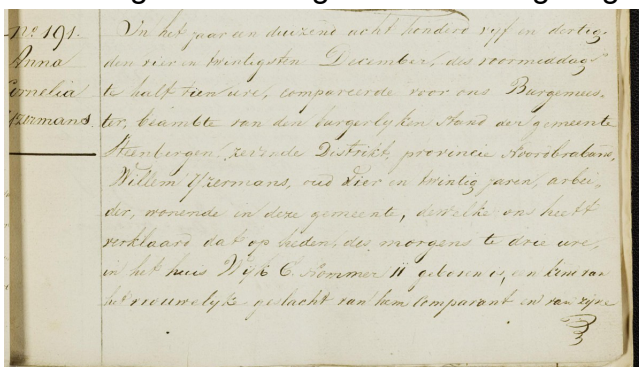 No 191.
Anna
Cornelia
IJzermans.
In het jaar een duizend acht honderd vijf en dertig,
den vier en twintigsten December, des voormiddags
te half tien ure, compareerde voor ons Burgemees-
ter, beambte van den burgerlyken stand der gemeente
Steenbergen, zevende Distrikt, provincie Noordbraband,
Willem IJzermans, oud vier en twintig jaren, arbei-
der, wonende in deze gemeente, dewelke ons heeft
verklaard dat op heden, des morgens te drie ure,
in het huis Wijk C. nommer 11 geboren is, een kind van
het vrouwelyk geslacht van hem Comparant en van zijne